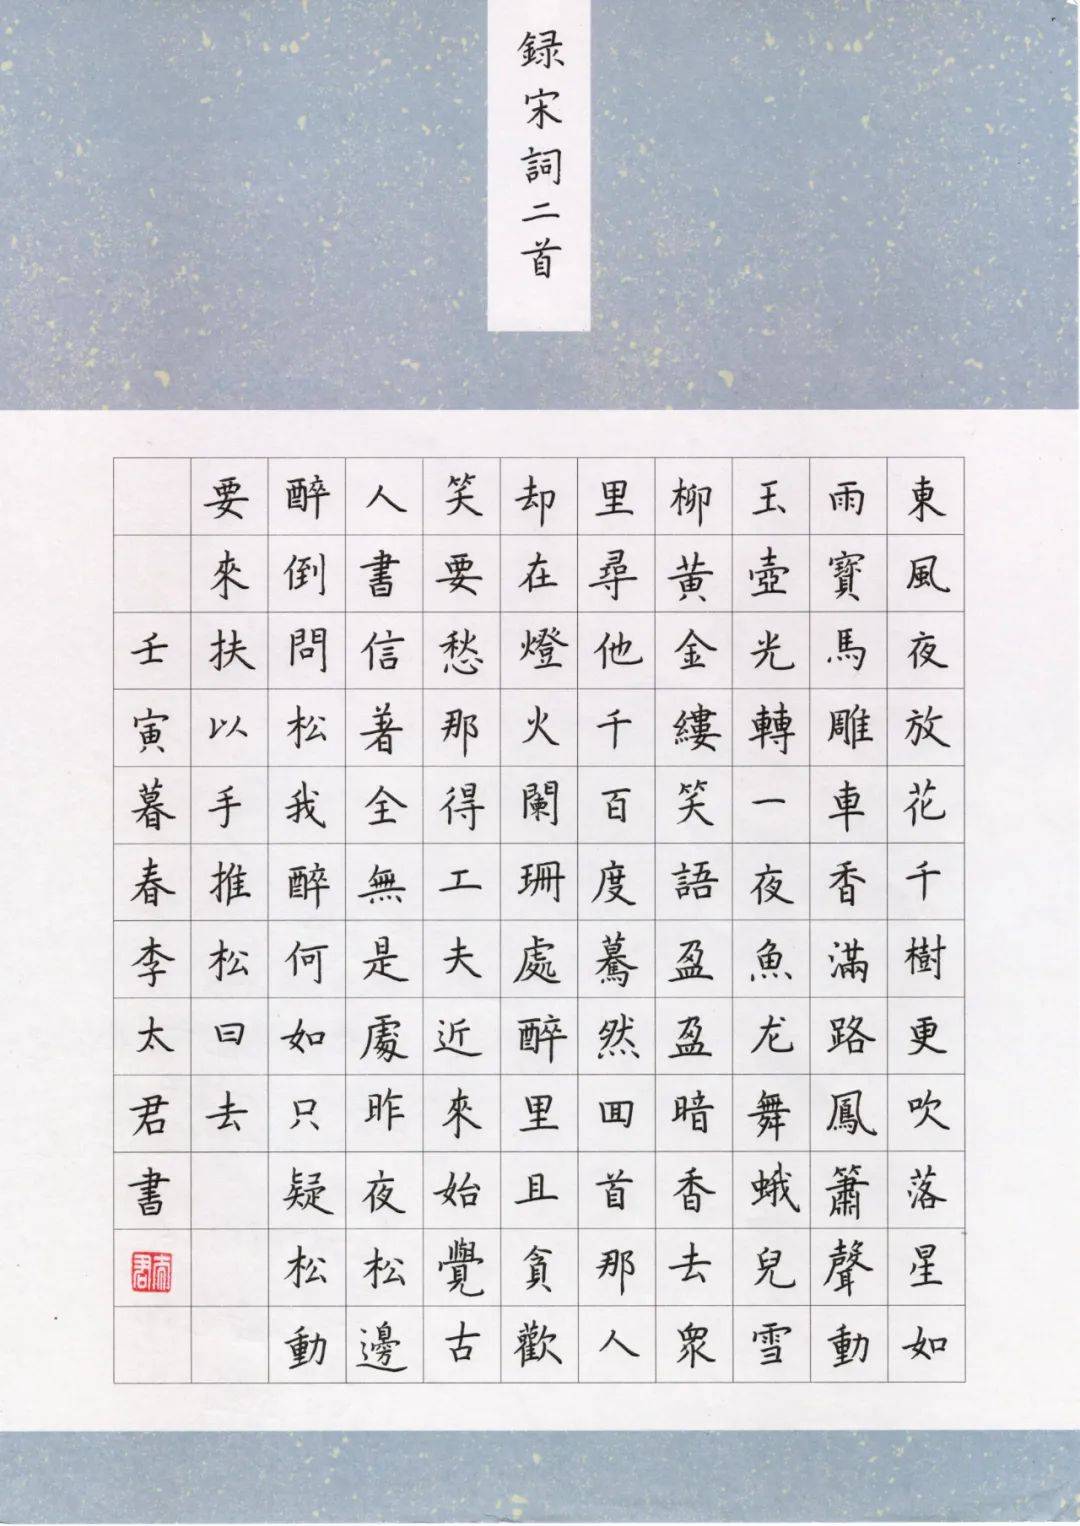 録宋詞二首
東風夜放花千樹更吹落星如
雨寶馬雕車香滿路鳳簫聲動
玉壺光轉一夜魚尤舞蛾兒雪
柳黃金縷笑語盈盈暗香去眾
里尋他千百度驀然回首那人
却在燈火闌珊處醉里且貪歡
笑要愁那得工夫近來始覺古
人書信著全無是處昨夜松邊
醉倒問松我醉何如只疑松動
要來扶以手推松曰去
壬寅暮春李太君書
太君